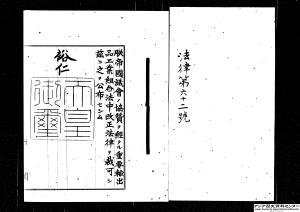 法律第六十二號
朕帝國議會ノ協贊ヲ經タル重要輸出
品工業組合法中改正法律ヲ裁可シ
茲ニ之ヲ公布セシム
裕仁
天皇
御璽
アジア歴史資料センター